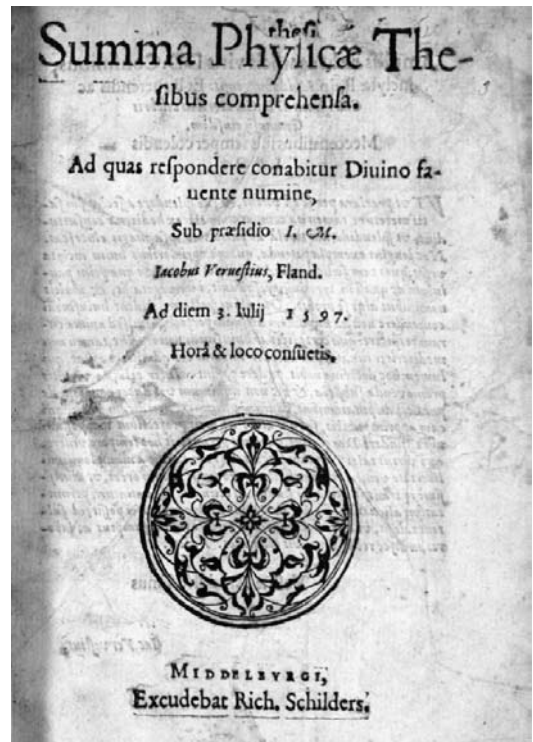 thesi
Summa Phyſicæ The-
ſibus comprehenſa.
Ad quas reſpondere conabitur Diuino fa-
uente numine,
Sub præſidio I. M.
Iacobus Verueſtius, Fland.
Ad diem 3. Iulij 1597.
Horâ & loco conſuetis.
MIDDELBVRGI,
Excudebat Rich. Schilders.